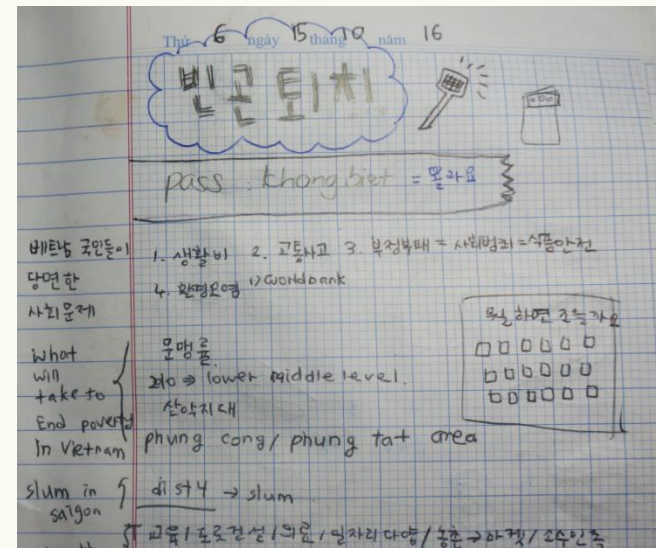 Thứ 6 ngày 15 tháng 10 năm 16
빈곤퇴치
pass khong biet = 몰라요
베트남 국민들이 당면한 사회문제
1. 생활비 2. 교통사고 3. 부정부패 = 사회범죄 = 식품안전
4. 환경오염 1) worldbank
뭘 하면 조을까요
what will take to End poverty In Vietnam
문맹률
lower middle level.
산악지대
phung cong / phung tat area
slum in saigon
dist 4 → slum
교육 / 도로건설 / 의료 / 일자리 다양 / 농촌 → / 소수민족